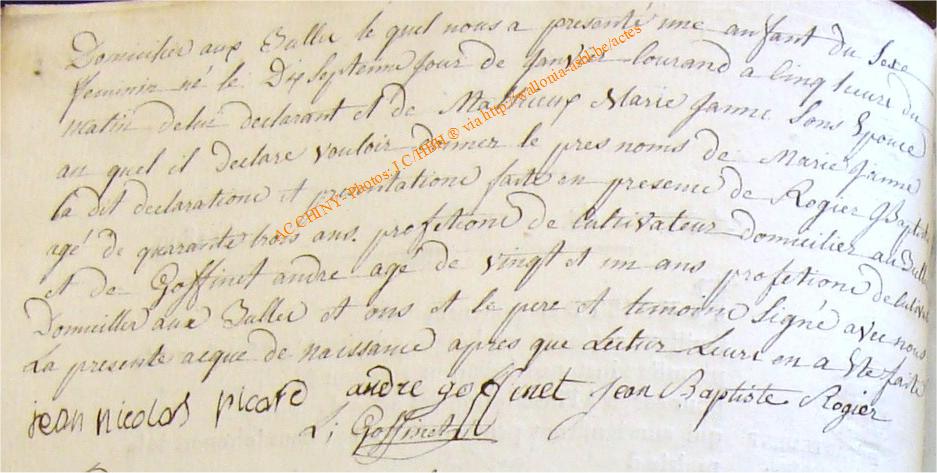 Domicilier aux Bulles le quel nous a presenté une anfant du Sexe
feminin né le Dix Septenne jour de Janvier Courand a Cinq heure du
matin de lui declarant et de Mathieux Marie Janne Sons Epouce
au quel il declare vouloir donner le pres noms de Marie Janne
la dit declaratione et presentatione faite en presence de Rogier Baptiste
agé de quarante trois ans. profetione de Cultivateur domicilier au Bulles
et de Goffinet andre agé de vingt et un ans profetione de
Domicilier aux Bulles et ons et le pere et temoins Signé avec nous
La presente acque de naissance apres que Lectur Leurs en a Ete faite
jean nicolas picard andre goffinet Jean Baptiste Rogier
Goffinet
ACCHINY-Photos: J.C/HBH ® via http://wallonia-asbl.be/actes